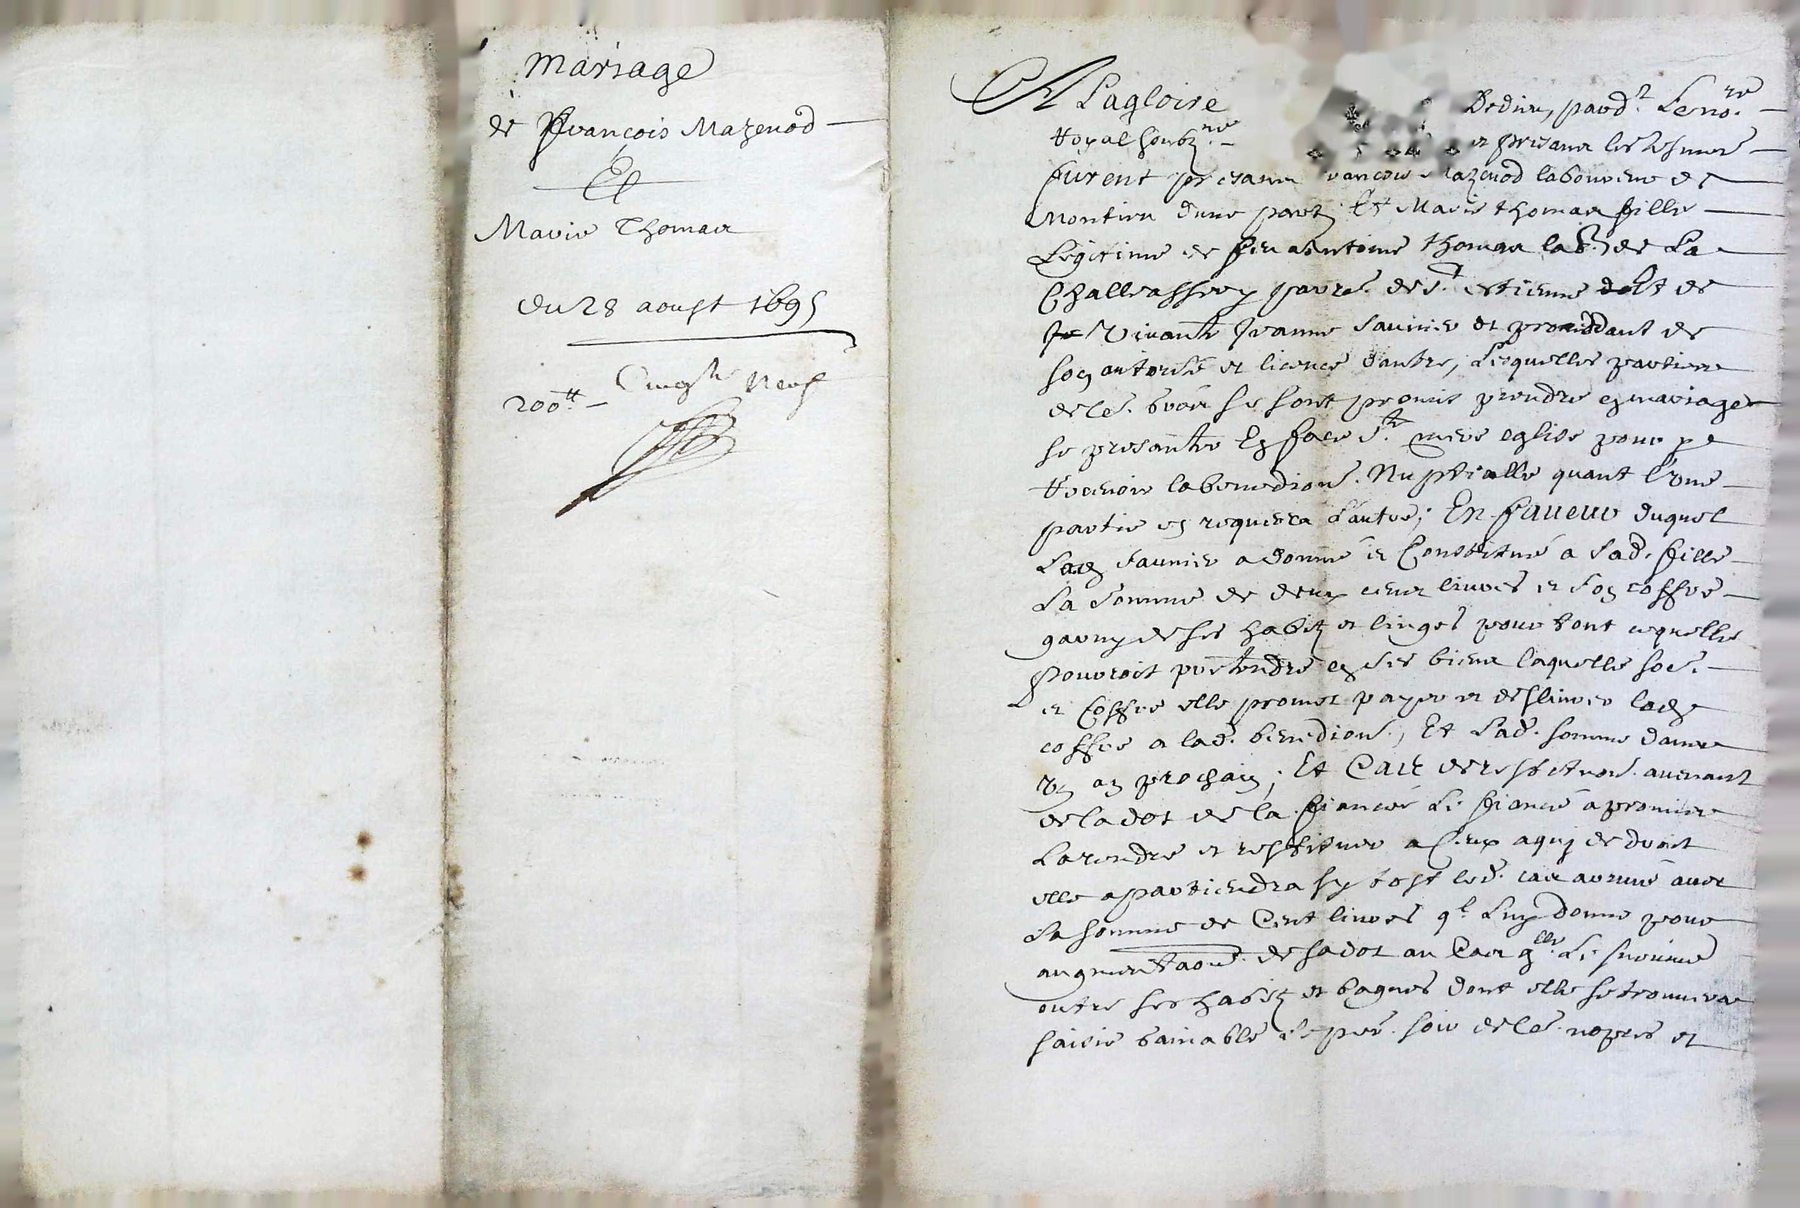 mariage
de François Mazenod
Et
Marie Thomas
du 28 aoust 1695
200tt - Cinqte Neuf
A Lagloire De Dieu, pard.t Le no.re
Royal soubz.ne et presans les tesmoins
furent presans François Mazenod laboureur de
Montieu dune part, Et Marie thomas fille
Legitime de feu anthoine thomas lab.r de La
Challeassiere parr.e de s.t estienne Et de
Vivante Jeanne saunier et proceddant de
son autorité et licence dautre, Lesquelles parties
de le. bvoir se sont promis prendre en mariage
se presanter En face s.te mere eglise pour y
Recevoir la benedion. Nuptialle quant L'une
partie en requerra L'autre; En faveur duquel
Lad. saunier a donné et Constitué a sad. fille
La somme de deux cens livres et son coffre
garny de ses habitz et linges pour tout ce quelle
pouvroit pretendre en ses biens laquelle so.e
et Coffre elle promet payer et deslivrer led.
coffre a lad. benedion., Et Lad. somme dans
Un an prochain; Et Cas de restitution. avenant
de la dot de la fiancée Le fiancé a promis
La rendre et restituer a Ceux a qui de droit
elle apartiendra sy tost led. cas arrivé avec
La somme de Cent livres q.l Luy donne pour
augmentaon. de sa dot au Cas q.lle Le survive
outre ses habitz et bagues dont elle se trouvera
saisie bainable le pre. soir de le. nopces et